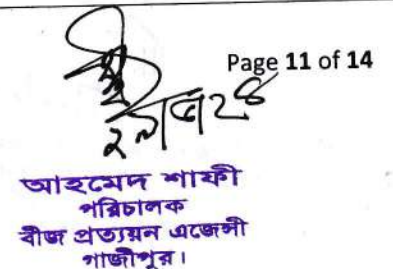 Page 11 of 14
আহমেদ শাফী
পরিচালক
বীজ প্রত্যয়ন এজেন্সী
গাজীপুর।